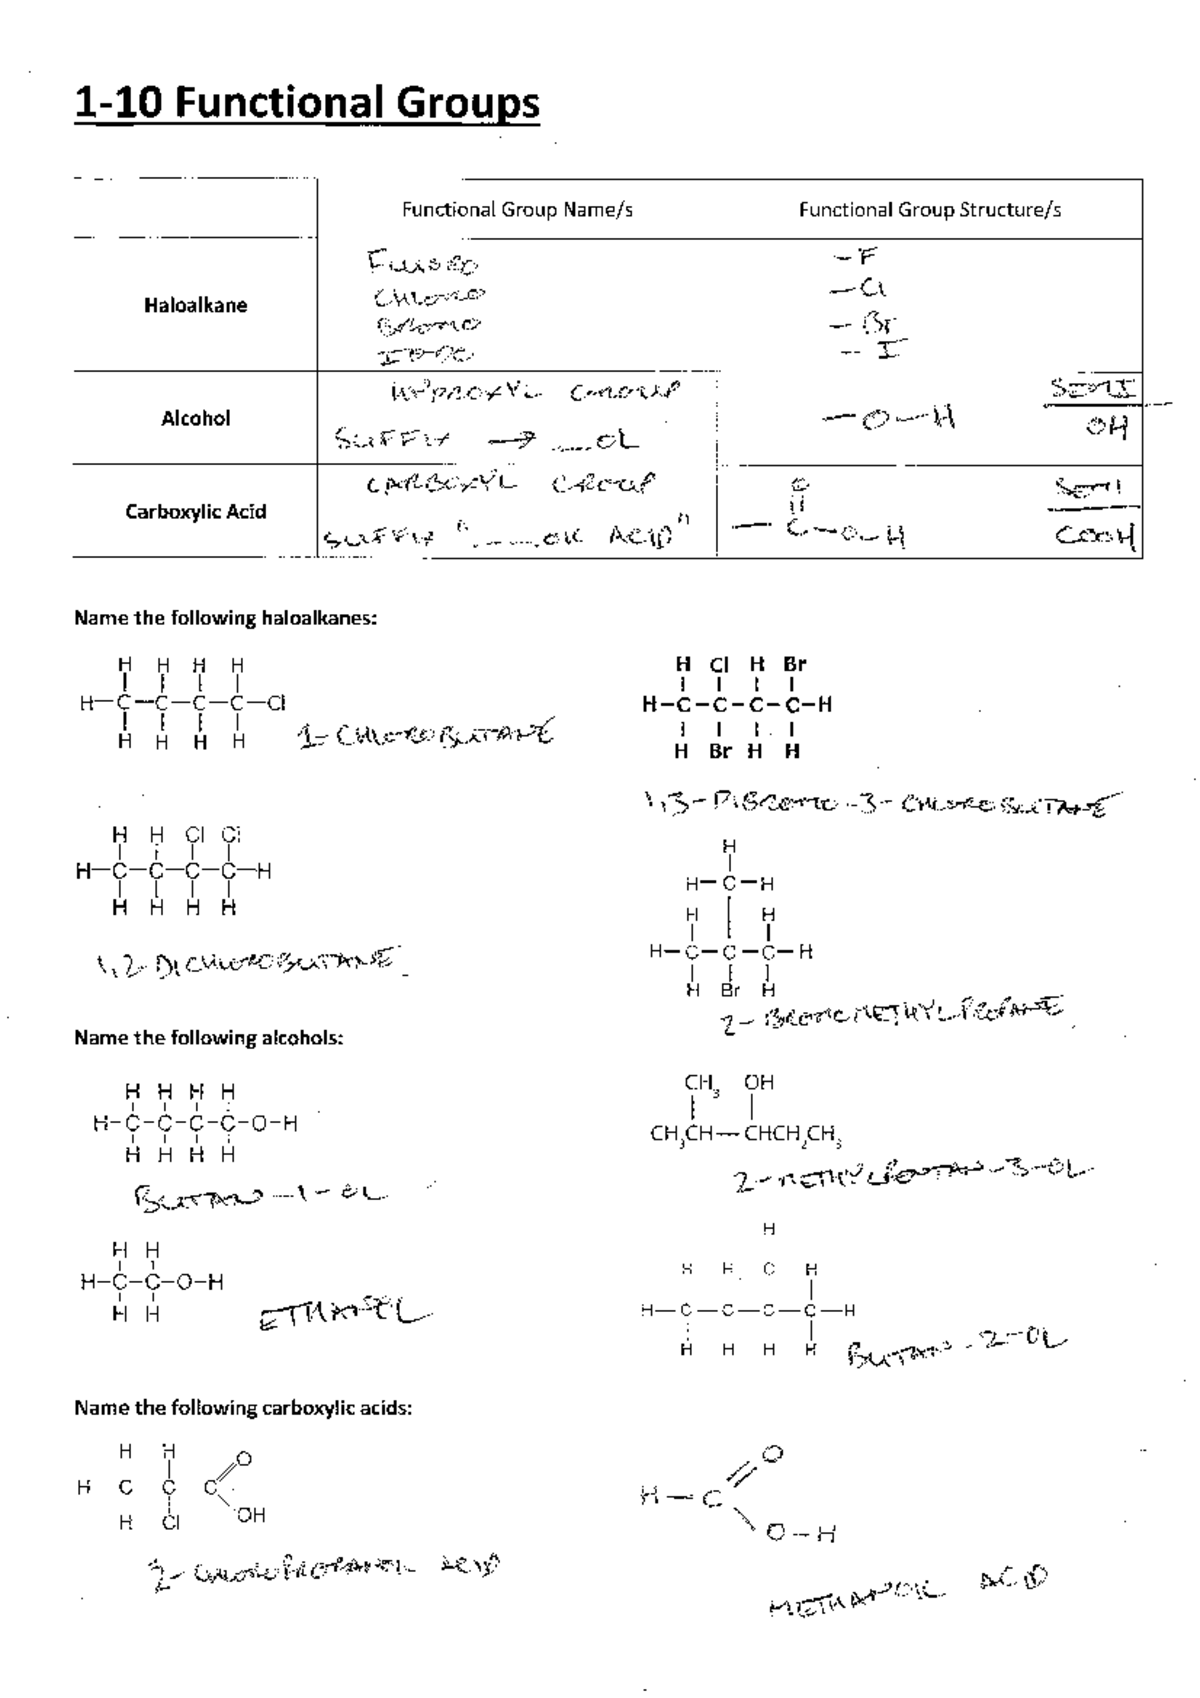 1-10 Functional Groups
Functional Group Name/s Functional Group Structure/s
Haloalkane
FLUORO –F
CHLORO –Cl
BROMO –Br
IODO –I
Alcohol
HYDROXYL GROUP
SUFFIX → ___OL
–O–H
SEMI
OH
Carboxylic Acid
CARBOXYL GROUP
SUFFIX "____OIC ACID"
O
– C–O–H
SEMI
COOH
Name the following haloalkanes:
H H H H
H–C–C–C–C–Cl
H H H H
1-CHLOROBUTANE
H Cl H Br
H–C–C–C–C–H
H Br H H
1,3-DIBROMO-3-CHLOROBUTANE
H H Cl Cl
H–C–C–C–C–H
H H H H
1,2-DICHLOROBUTANE
H
H–C–H
H H
H–C–C–C–H
H Br H
2-BROMOMETHYLPROPANE
Name the following alcohols:
H H H H
H–C–C–C–C–O–H
H H H H
BUTAN-1-OL
CH3 OH
CH3CH–CHCH2CH3
2-METHYLPENTAN-3-OL
H H
H–C–C–O–H
H H
ETHANOL
H
H H C H
H–C–C–C–C–H
H H H H
BUTAN-2-OL
Name the following carboxylic acids:
H H O
H C C C
H Cl OH
2-CHLOROPROPANOIC ACID
O
H–C
O–H
METHANOIC ACID